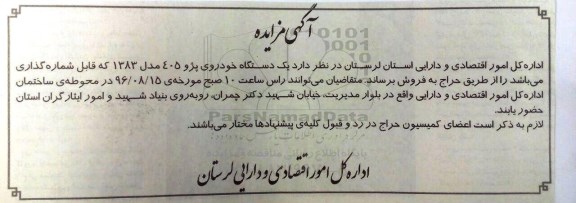 آگهی مزایده
اداره کل امور اقتصادی و دارایی استان لرستان در نظر دارد یک دستگاه خودروی پژو ۴۰۵ مدل ۱۳۸۳ که قابل شماره گذاری
می‌باشد را از طریق حراج به فروش برساند. متقاضیان می‌توانند راس ساعت ۱۰ صبح مورخه‌ی ۹۶/۰۸/۱۵ در محوطه‌ی ساختمان
اداره کل امور اقتصادی و دارایی واقع در بلوار مدیریت، خیابان شهید دکتر چمران، روبه‌روی بنیاد شهید و امور ایثارگران استان
حضور یابند.
لازم به ذکر است اعضای کمیسیون حراج در رد و قبول کلیه‌ی پیشنهادها مختار می‌باشند.
اداره کل امور اقتصادی و دارایی لرستان
ParsNamadData